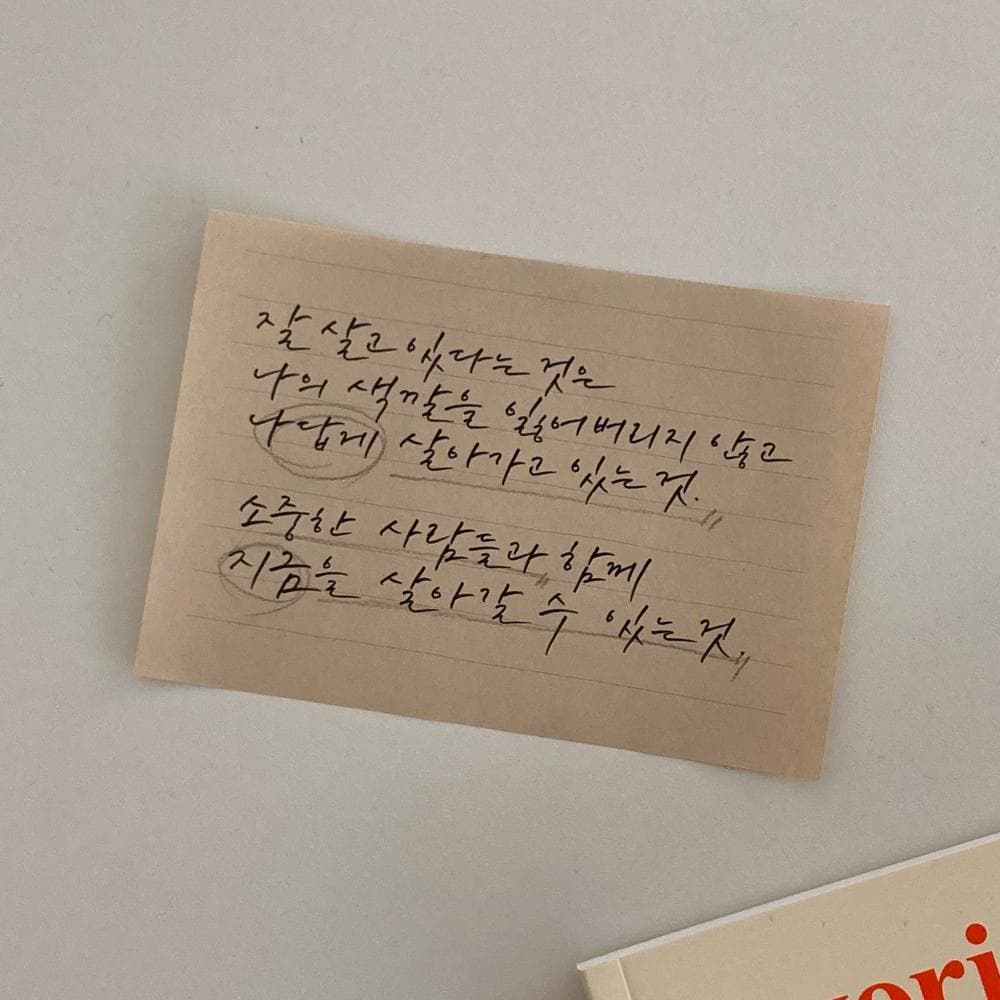 잘 살고 있다는 것은
나의 색깔을 잃어버리지 않고
나답게 살아가고 있는 것.
소중한 사람들과 함께
지금을 살아갈 수 있는 것.